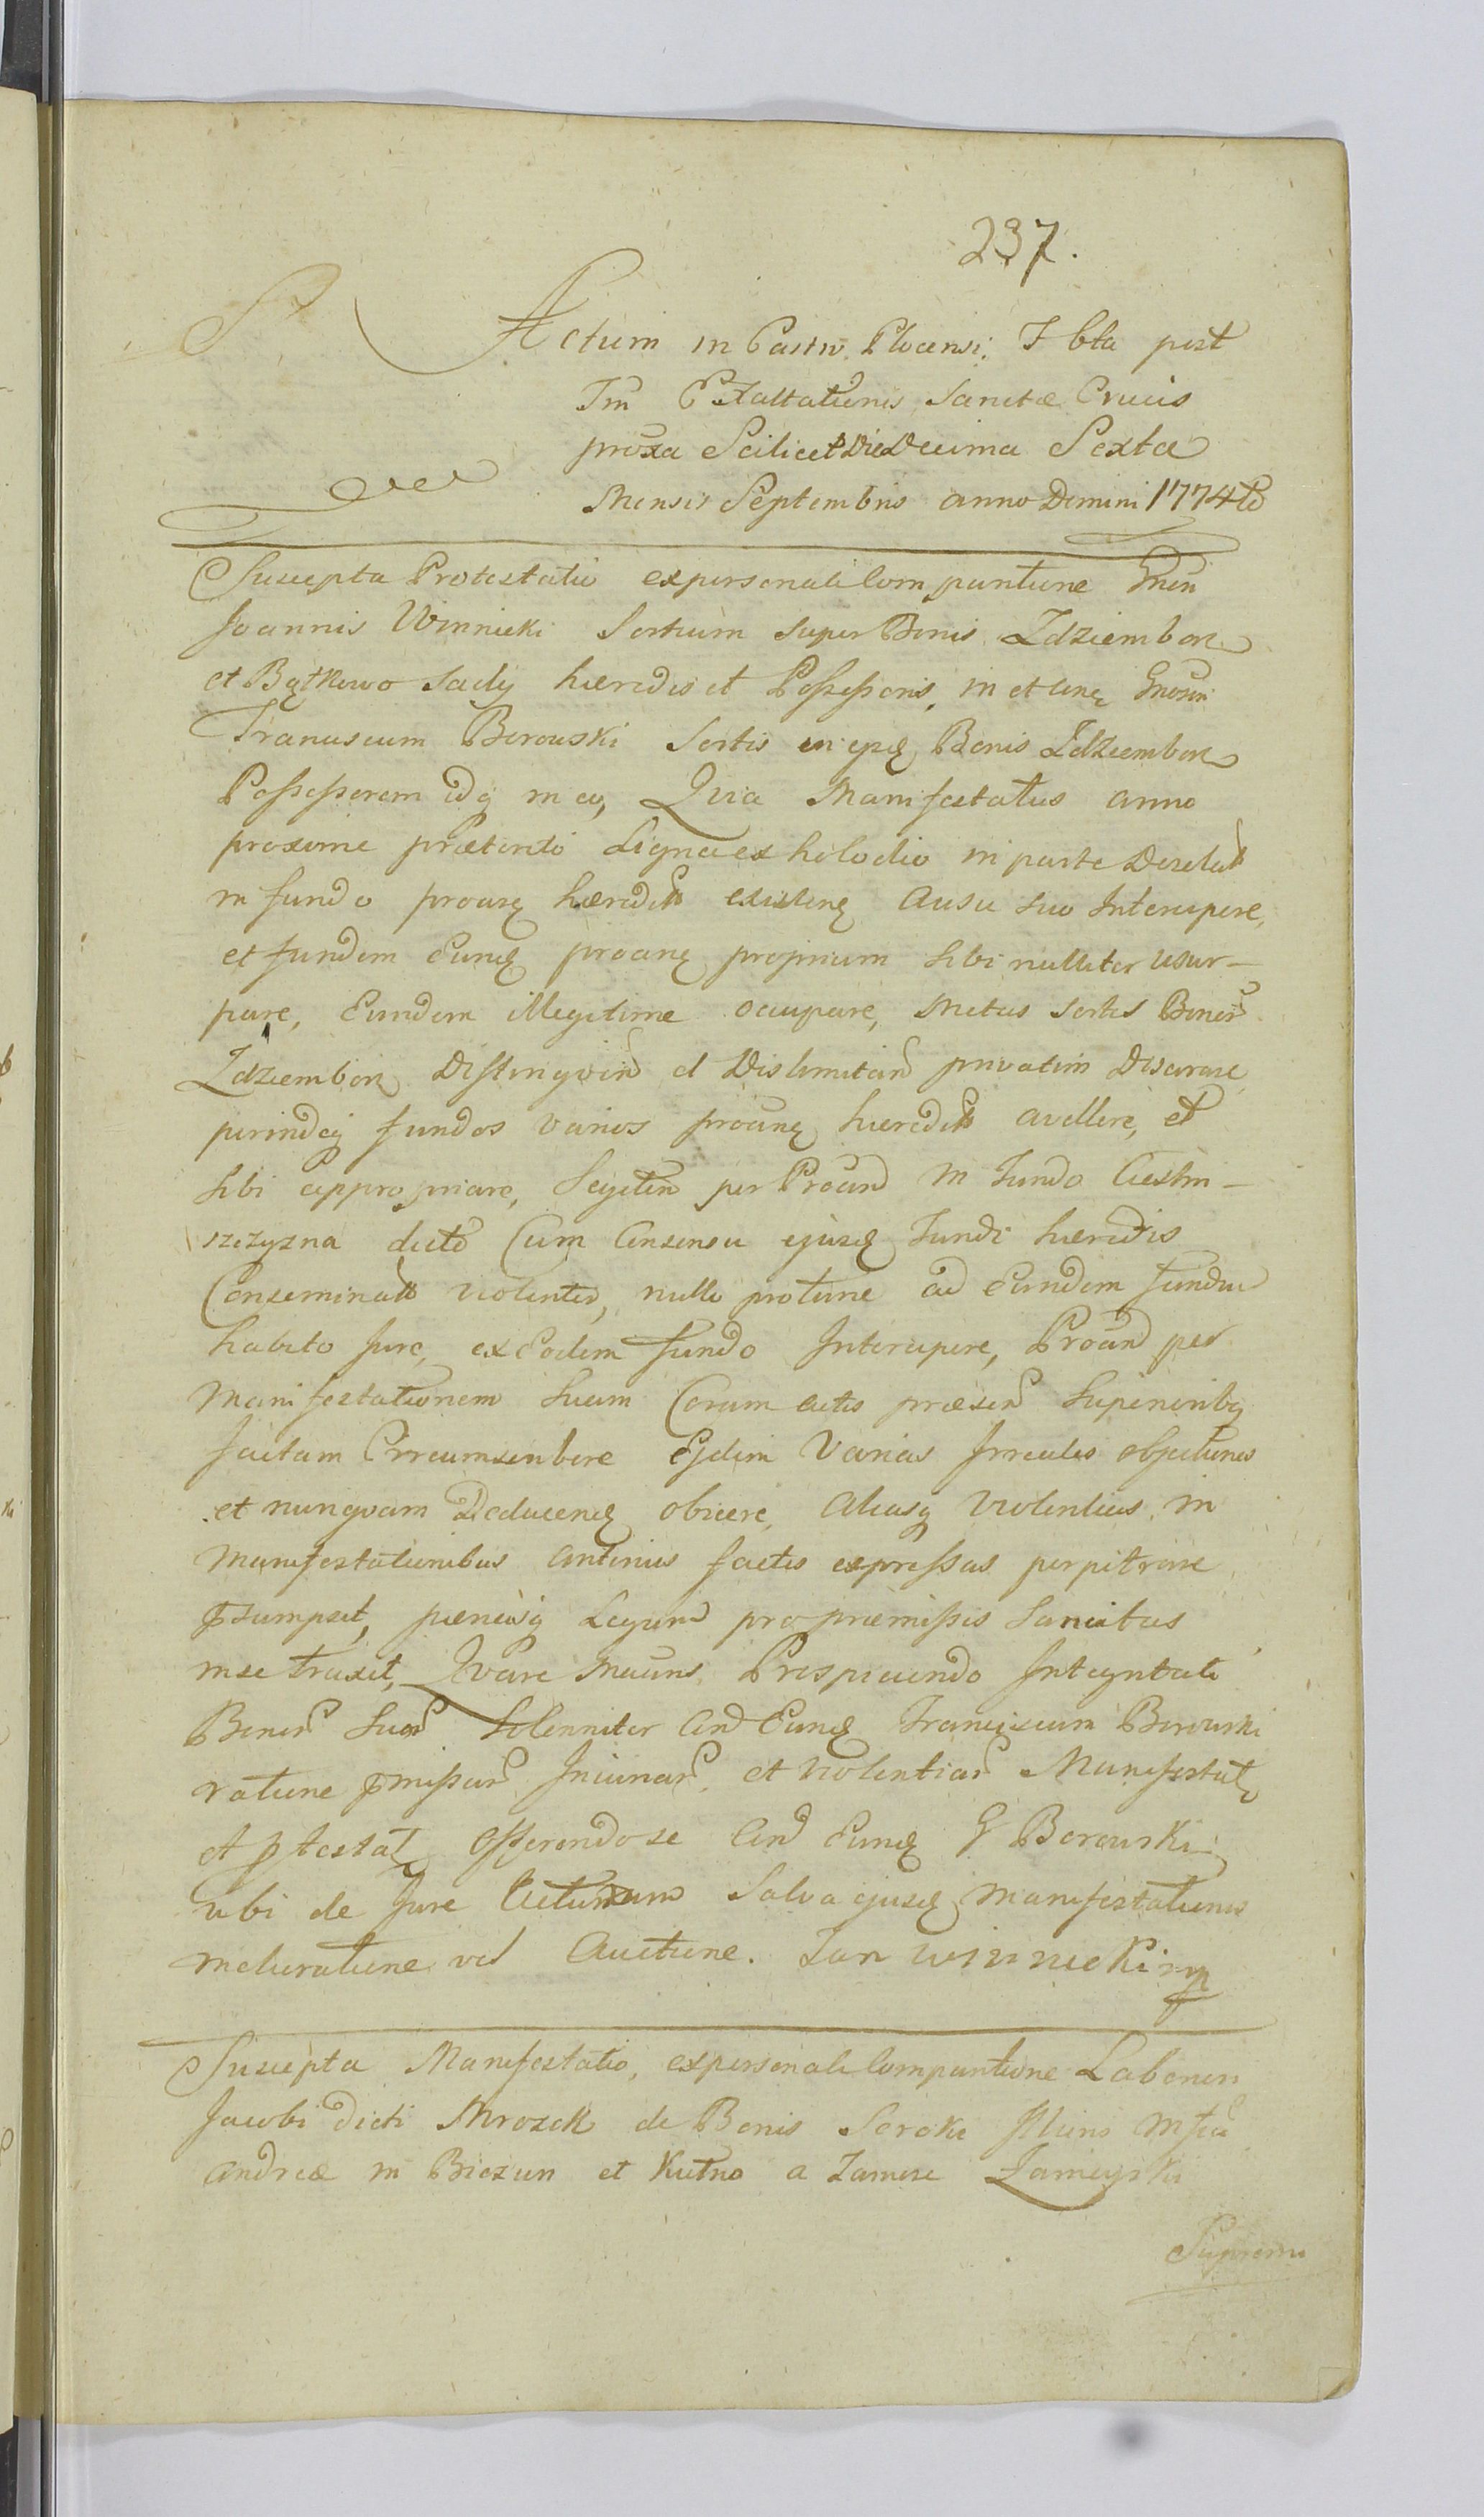 237.
Actum in Castro Plocensi, F 6ta post
Fm Exaltationis Sanctæ Crucis
proxa Scilicet Die Decima Sexta
Mensis Septembris anno Domini 1774to
Suscepta Protestatio ex personali Comparitione
Joannis Winnicki Sortium super Bonis Zdziemborz
et Bątkowo Sady hæredis et Possessoris, in et
Franciscum Borowski Sortis in Bonis Zdziemborz
Possessorem idq in eo, Quia Manifestatus anno
proxime præterito Ligna ex holodio in parte Desolat
in fundo hæredit existen Ausu suo Intercipere,
et fundum Eund proan proprium sibi nulliter usur-
pare, Eundem illegitime occupare, Metas Sortis Bonor
Zdziemborz Distingvend et Dislimitand privatim Disarare
perindeq fundos varios proan hæredit avellere, et
sibi appropriare, Segetem per Proand in Fundo
szczyzna dicto Cum Consensu ejusd Fundi hæredis
Conseminat violenter, nullo protunc ad Eundem fundum
habito Jure, ex Eodem fundo Intercipere, Proand per
Manifestationem suam Coram actis præsen Superioribq
factam Circumscribere Ejdem Varias Irreales objectiones
et nunqvam Deducend obicere, Aliasq violentias in
Manifestationibus anterius factis expressas perpetrare
psumpsit, pænasq Legum pro præmissis Sancitas
in se traxit, Qvare Prospiciendo Integritati
Bonor Suor Solenniter Con Eund Franciscum Borowski
ratione pmissar Injuriar et violentiar Manifestat
et ptestat offerendo se Con Eund G Borowski
ubi de Jure Acturum Salva ejusd Manifestationis
melioratione vel Auctione. Jan Winnicki mp
Suscepta Manifestatio, ex personali Comparitione Laborion
Jacobi dicti Mrozek de Bonis Seroki
Andreæ in Biezun et Kutno a Zamosc Zamoyski
Supremi